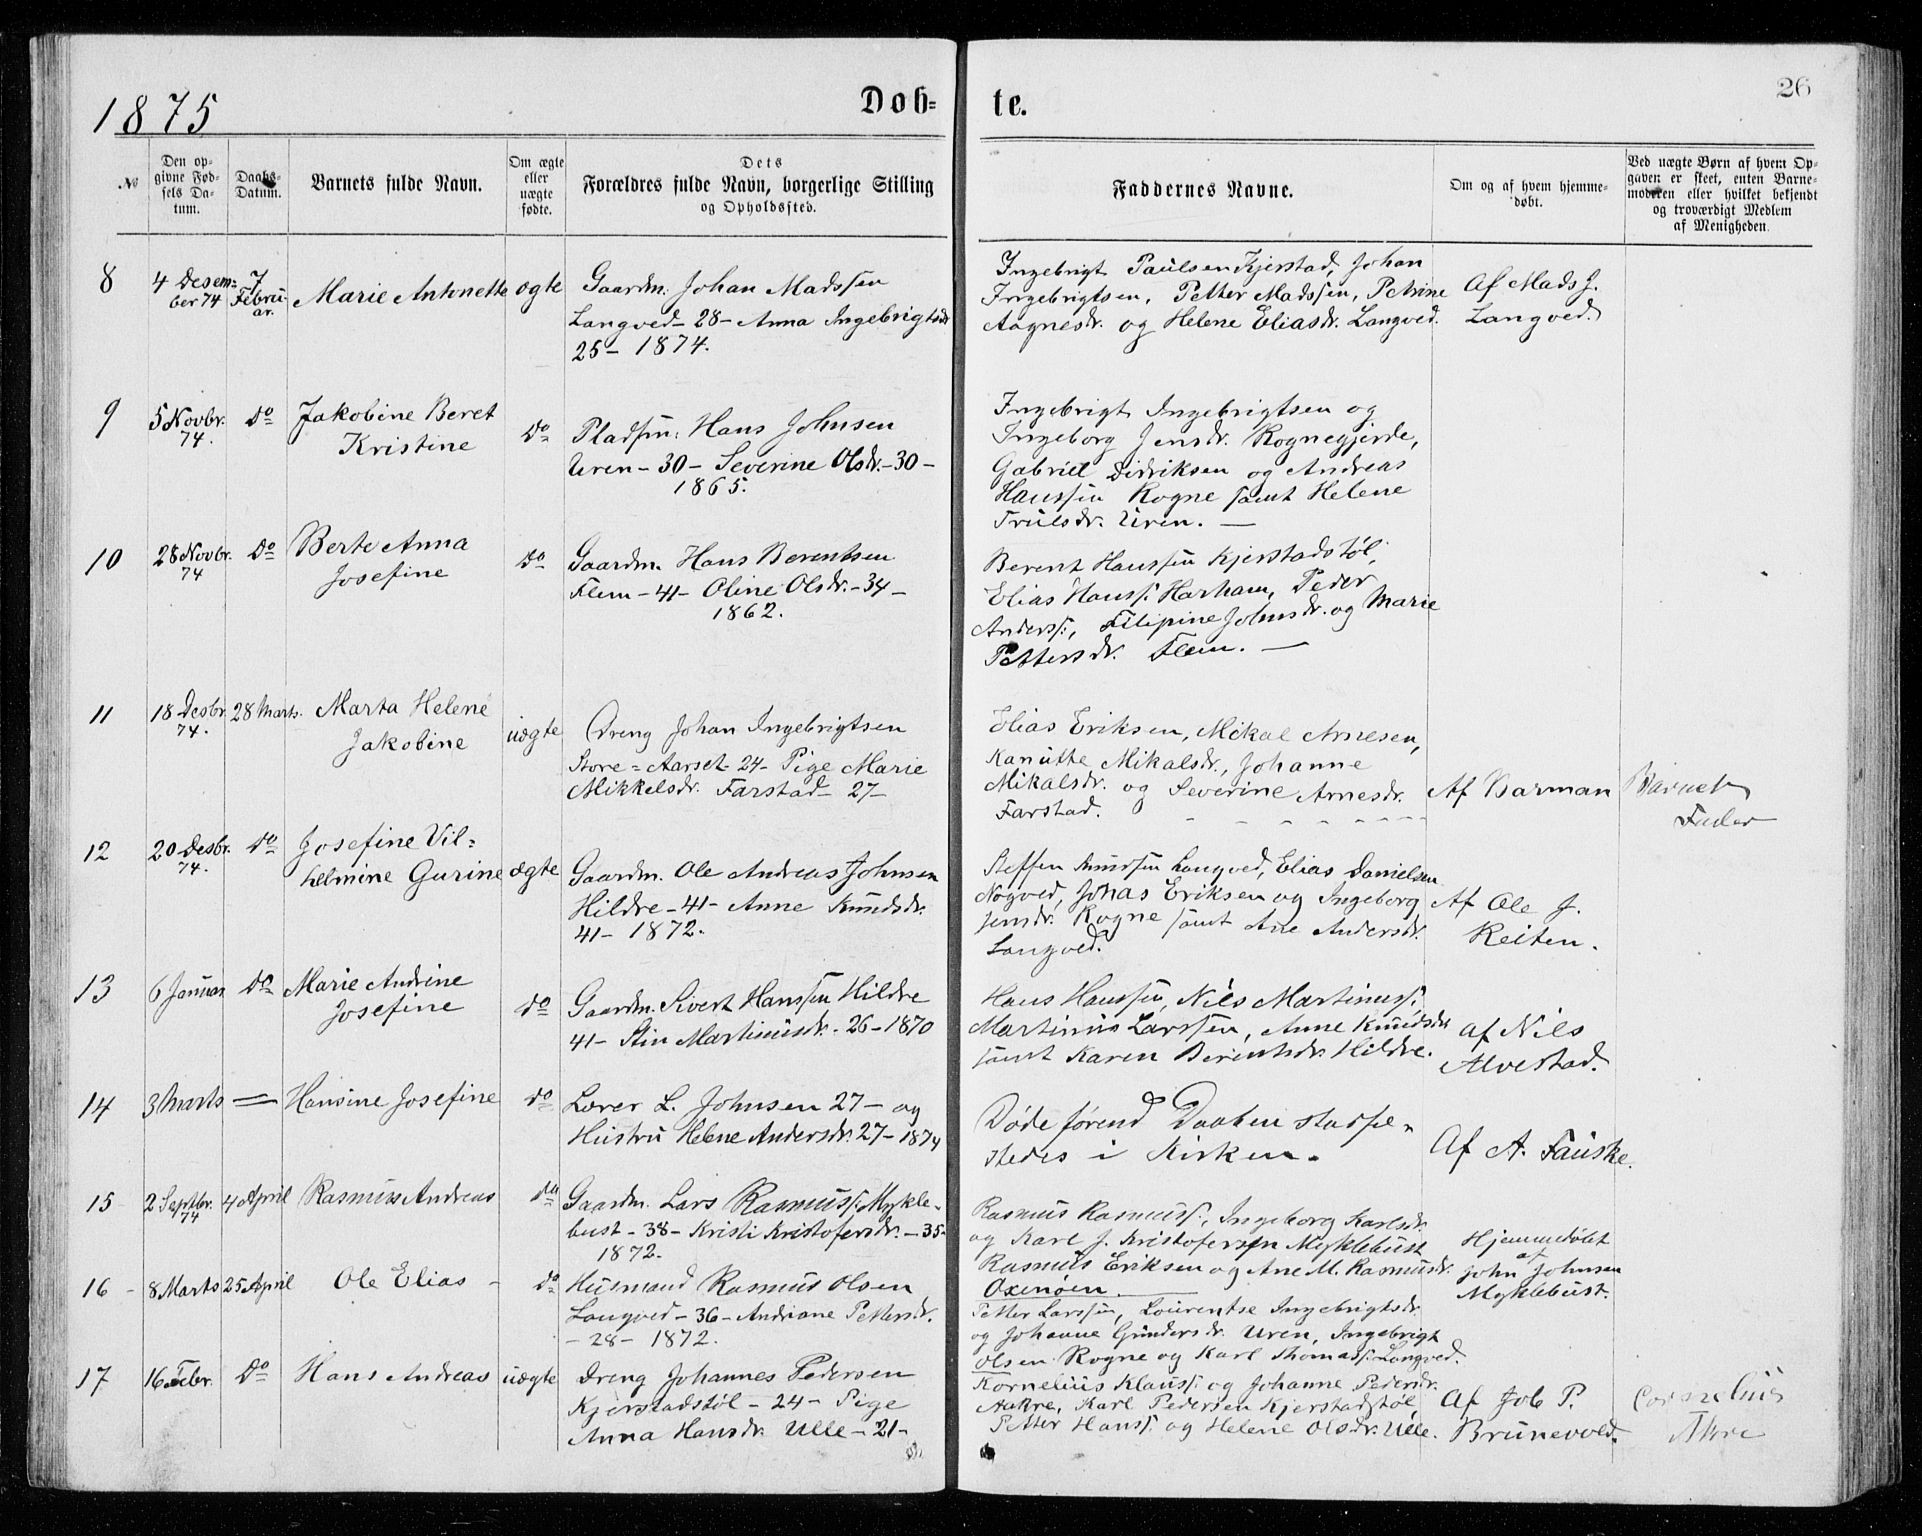 1875
Døb=
te.
26
№
Den op-
givne Fød-
sels Da-
tum.
Daabs-
Datum.
Barnets fulde Navn.
Om ægte
eller
uægte
fødte.
Dets
Forældres fulde Navn, borgerlige Stilling
og Opholdssted.
Faddernes Navne.
Om og af hvem hjemme-
døbt.
Ved uægte Børn af hvem Op-
gaven er skeet, enten Barne-
moderen eller hvilket bekjendt
og troværdigt Medlem
af Menigheden.
8
4 Desem=
ber 74
7
Febru
ar.
Marie Antonette
ægte
Gaardm. Johan Madssen
Langved - 28 - Anna Ingebrigtsdr
25 - 1874.
Ingebrigt Paulsen Kjerstad, Johan
Ingebrigtsen, Petter Madssen, Petrine
Aagnesdr. og Helene Eliasdr. Langved.
Af Mads J.
Langved.
9
5 Novbr.
74.
Do
Jakobine Beret
Kristine
Do
Pladsm: Hans Johnsen
Uren - 30 - Severine Olsdr. - 30 -
1865.
Ingebrigt Ingebrigtsen og
Ingeborg Jensdr. Rognegjerde,
Gabriel Didriksen og Andreas
Hanssen Rogne samt Helene
Trulsdr. Uren. —
10
28 Novbr.
74
Do
Berte Anna
Josefine
Do
Gaardm. Hans Berentsen
Flem - 41 - Oline Olsdr. - 34 -
1862.
Berent Hanssen Kjerstadstøl,
Elias Hanss. Harham, Peder
Anderss:, Filipine Johnsdr. og Marie
Pettersdr. Flem. —
11
18 Desbr.
74.
28 Marts.
Marta Helene
Jakobine
uægte
Dreng Johan Ingebrigtsen
Store=Aarset - 24 - Pige Marie
Mikkelsdr. Farstad - 27 -
Elias Eriksen, Mikal Arnesen,
Kanutte Mikalsdr., Johanne
Mikalsdr. og Severine Arnesdr.
Farstad.
Af Barman
Barnets
Fader
12
20 Desbr.
74.
Do
Josefine Vil=
helmine Gurine
ægte
Gaardm. Ole Andreas Johnsen
Hildre - 41 - Anne Knudsdr.
41 - 1872.
Steffen Knudsen Langved, Elias Danielsen
Nogved, Jonas Eriksen og Ingeborg
Jensdr. Rogne samt Ane Andersdr.
Langved.
Af Ole J.
Reiten.
13
6 Januar
Do
Marie Andrine
Josefine
Do
Gaardm. Sivert Hanssen Hildre
41 - Stin Martinusdr. - 26 - 1870
Hans Hanssen, Nils Martinuss:,
Martinus Larssen, Anne Knudsdr
samt Karen Berentsdr. Hildre.
Af Nils
Alvestad.
14
3 Marts
Hansine Josefine
Do
Lærer L. Johnsen 27 - og
Hustru Helene Andersdr. 27 - 1874
Døde førend Daaben stadfæ-
stedes i Kirken.
Af A. Fauske.
15
2 Septbr.
74
4 April
Rasmus Andreas
Do
Gaardm. Lars Rasmuss: Mykle-
bust - 38 - Kristi Kristofersdr. - 35 -
1872.
Rasmus Rasmuss:, Ingeborg Karlsdr.
og Karl J. Kristofersen Myklebust
Rasmus Eriksen og Ane M. Rasmusdr.
Oxenøen.
Hjemmedøbt
af
John Johnsen
Myklebust.
16
8 Marts
25 April
Ole Elias
Do
Husmand Rasmus Olsen
Langved - 36 - Andriane Pettersdr.
- 28 - 1872.
Petter Larssen, Lourentse Ingebrigtsdr.
og Johanne Gundersdr. Uren, Ingebrigt
Olsen Rogne og Karl Thomass: Langved.
17
16 Febr.
Do
Hans Andreas
uægte
Dreng Johannes Pedersen
Kjerstadstøl - 24 - Pige
Anna Hansdr. Ulle - 21 -
Kornelius Klauss: og Johanne Pedersdr.
Aakre, Karl Pedersen Kjerstadstøl
Petter Hanss: og Helene Olsdr. Ulle.
Af Job P.
Brunevold.
Cornelius
Akre